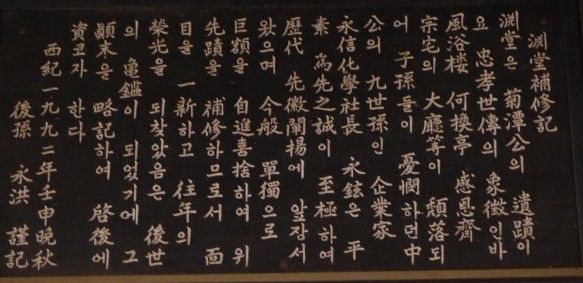 渊堂補修記
渊堂은 菊潭公의 遺蹟이
요 忠孝世傳의 象徵인바
風浴楼 何換亭 感恩齋
宗宅의 大廳等이 頹落되
어 子孫들이 憂憫하던中
公의 九世孫인 企業家
永信化學社長 永鉉은 平
素 為先之誠이 至極하여
歷代 先微闡揚에 앞장서
왔으며 今般 單獨으로
巨額을 自進喜捨하여 위
先蹟을 補修하므로서 面
目을 一新하고 往年의
榮光을 되찾았음은 後世
의 龜鑑이 되었기에 그
顚末을 略記하여 啓後에
資코자 한다
西紀一九九二年壬申晩秋
後孫 永洪 謹記